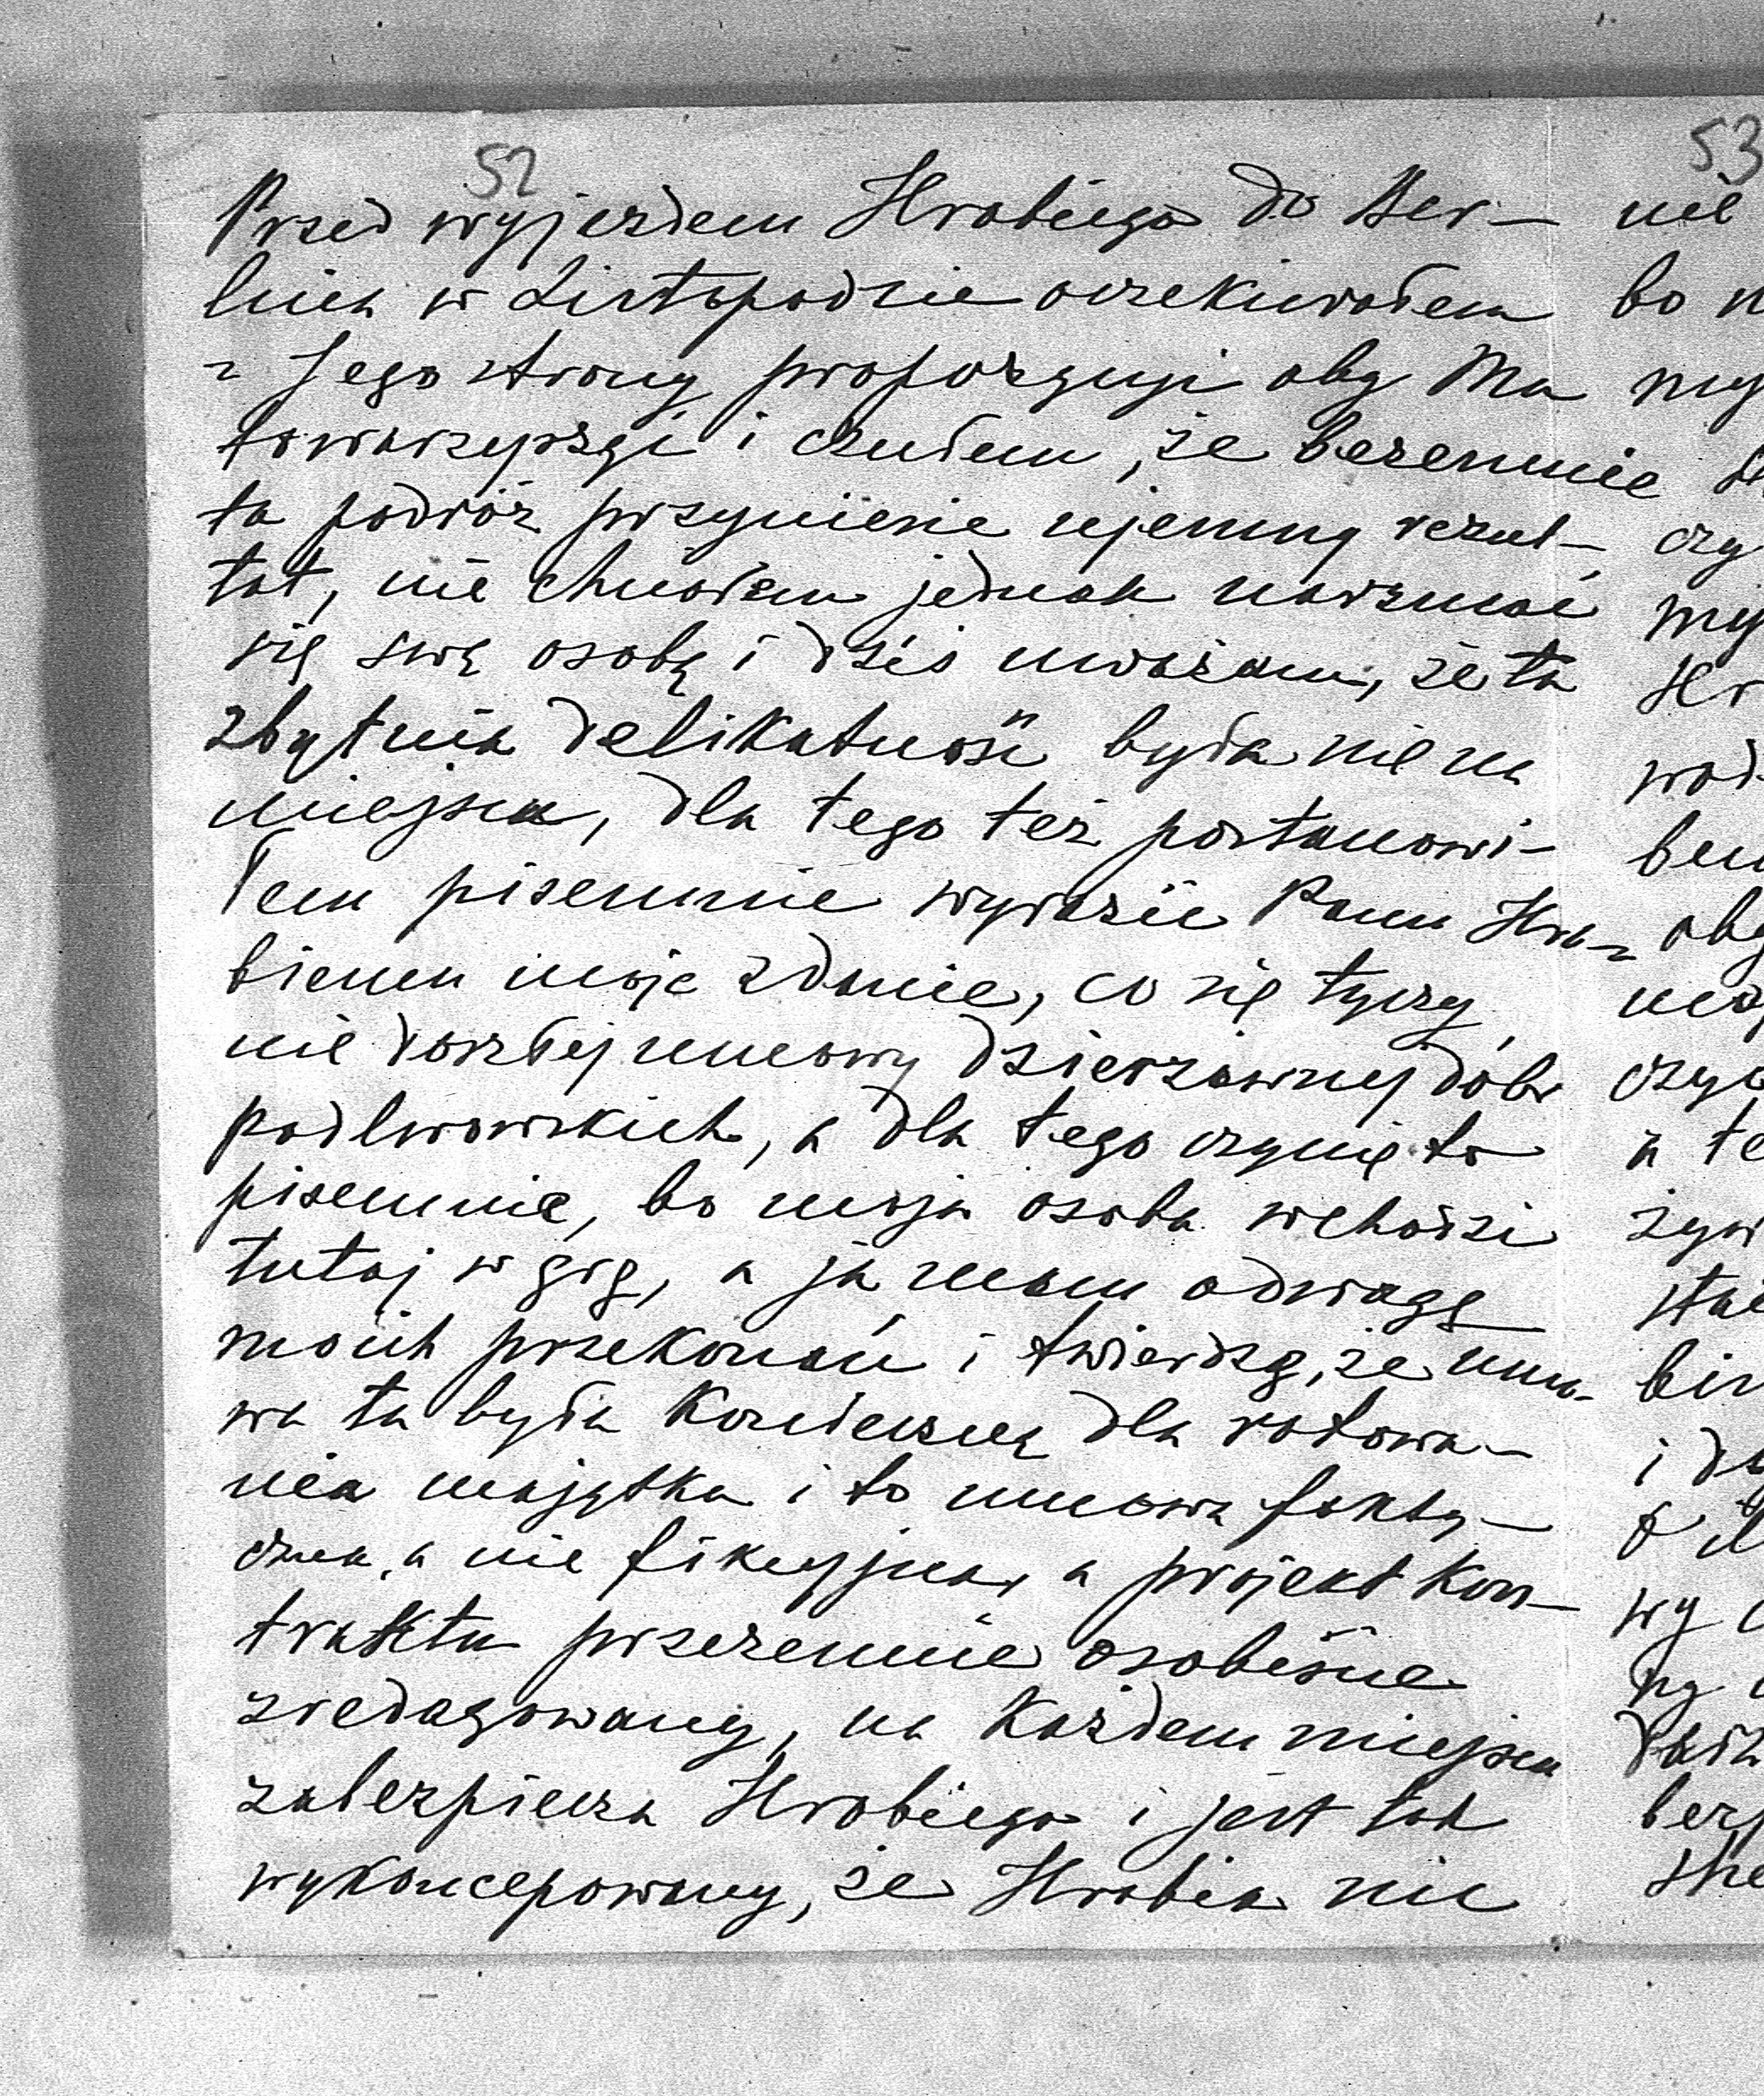 52
Przed wyjazdem Hrabiego do Ber-
lina w Listopadzie oczekiwałem
z Jego strony propozycji aby Mu
towarzyszyć i czułem, że bezemnie
ta podróż przyniesie ujemny rezul-
tat, nie chciałem jednak narzucać
się swą osobą i dziś uważam, że ta
zbytnia delikatność była nie na
miejscu, dla tego też postanowi-
łem pisemnie wyrazić Panu Hra-
biemu moje zdanie, co się tyczy
nie doszłej umowy dzierżawnej dóbr
podlwowskich, a dla tego czynię to
pisemnie, bo moja osoba wchodzi
tutaj w grę, a ja mam odwagę
moich przekonań i twierdzę, że umo-
wa ta była konieczną dla ratowa-
nia majątku i to umowa fakty-
czna, a nie fikcyjna, a projekt kon-
traktu przezemnie osobiście
zredagowany, na każdem miejscu
zabezpiecza Hrabiego i jest tak
wykoncepowany, że Hrabia nic
53
nie
bo